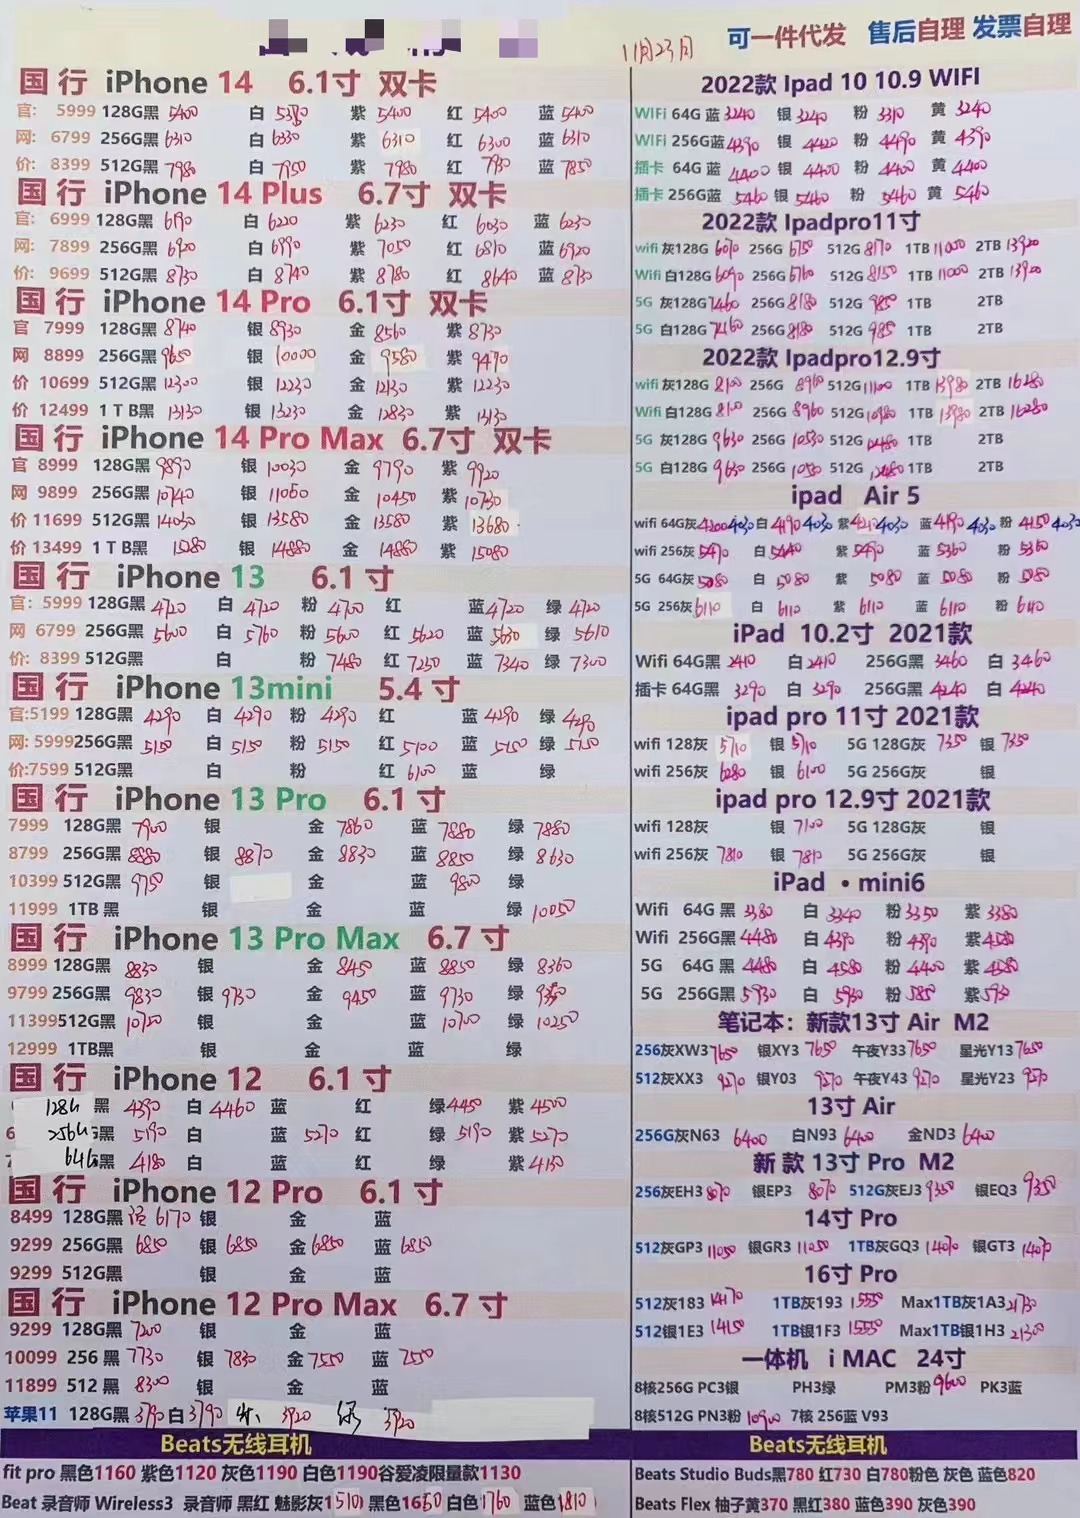 可一件代发 售后自理 发票自理
11月23日
国行 iPhone 14 6.1寸 双卡
官: 5999 128G黑 5400 白 5380 紫 5400 红 5400 蓝 5400
网: 6799 256G黑 6310 白 6330 紫 6310 红 6300 蓝 6310
价: 8399 512G黑 7980 白 7950 紫 7980 红 7930 蓝 7850
国行 iPhone 14 Plus 6.7寸 双卡
官: 6999 128G黑 6190 白 6220 紫 6230 红 6030 蓝 6230
网: 7899 256G黑 6920 白 6990 紫 7050 红 6810 蓝 6920
价: 9699 512G黑 8730 白 8740 紫 8780 红 8640 蓝 8730
国行 iPhone 14 Pro 6.1寸 双卡
官 7999 128G黑 8740 银 8930 金 8560 紫 8730
网 8899 256G黑 9650 银 10000 金 9580 紫 9470
价 10699 512G黑 12300 银 12230 金 12130 紫 12230
价 12499 1TB黑 13130 银 13230 金 12830 紫 13130
国行 iPhone 14 Pro Max 6.7寸 双卡
官 8999 128G黑 9890 银 10030 金 9790 紫 9920
网 9899 256G黑 10740 银 11060 金 10450 紫 10730
价 11699 512G黑 14030 银 13580 金 13580 紫 13680
价 13499 1TB黑 15080 银 14880 金 14880 紫 15080
国行 iPhone 13 6.1寸
官: 5999 128G黑 4720 白 4720 粉 4700 红 蓝 4720 绿 4720
网 6799 256G黑 5600 白 5760 粉 5600 红 5620 蓝 5630 绿 5610
价: 8399 512G黑 白 粉 7480 红 7250 蓝 7340 绿 7300
国行 iPhone 13mini 5.4寸
官:5199 128G黑 4290 白 4290 粉 4290 红 蓝 4290 绿 4290
网: 5999 256G黑 5150 白 5150 粉 5150 红 5100 蓝 5150 绿 5150
价:7599 512G黑 白 粉 红 6100 蓝 绿
国行 iPhone 13 Pro 6.1寸
7999 128G黑 7900 银 金 7860 蓝 7880 绿 7880
8799 256G黑 8880 银 8870 金 8830 蓝 8850 绿 8630
10399 512G黑 9750 银 金 蓝 9800 绿
11999 1TB黑 银 金 蓝 绿 10050
国行 iPhone 13 Pro Max 6.7寸
8999 128G黑 8830 银 金 8450 蓝 8850 绿 8360
9799 256G黑 9830 银 9730 金 9450 蓝 9730 绿
11399 512G黑 10720 银 金 蓝 10700 绿 10250
12999 1TB黑 银 金 蓝 绿
国行 iPhone 12 6.1寸
128G 黑 4390 白 4460 蓝 红 绿 4450 紫 4500
256G 黑 5190 白 蓝 5270 红 绿 5190 紫 5270
64G 黑 4180 白 蓝 红 绿 紫 4130
国行 iPhone 12 Pro 6.1寸
8499 128G黑 6170 银 金 蓝
9299 256G黑 6850 银 6850 金 6850 蓝 6850
9299 512G黑 银 金 蓝
国行 iPhone 12 Pro Max 6.7寸
9299 128G黑 7200 银 金 蓝
10099 256黑 7730 银 7830 金 7550 蓝 7550
11899 512黑 8300 银 金 蓝
苹果11 128G黑 3790 白 3790 3920 绿 3920
Beats无线耳机
fit pro 黑色1160 紫色1120 灰色1190 白色1190谷爱凌限量款1130
Beat 录音师 Wireless3 录音师 黑红 魅影灰1510 黑色1650 白色1760 蓝色1810
2022款 Ipad 10 10.9 WIFI
WIFi 64G 蓝 3240 银 3240 粉 3310 黄 3240
WIFI 256G蓝 4390 银 4420 粉 4490 黄 4390
插卡 64G 蓝 4400 银 4400 粉 4400 黄 4400
插卡 256G蓝 5460 银 5460 粉 5460 黄 5460
2022款 Ipadpro11寸
wifi 灰128G 6070 256G 6750 512G 8170 1TB 11000 2TB 13920
Wifi 白128G 6090 256G 6760 512G 8150 1TB 11000 2TB 13920
5G 灰128G 7460 256G 8180 512G 985 1TB 2TB
5G 白128G 7460 256G 8180 512G 985 1TB 2TB
2022款 Ipadpro12.9寸
wifi 灰128G 8100 256G 8960 512G 11100 1TB 13980 2TB 16280
Wifi 白128G 8100 256G 8960 512G 10980 1TB 13980 2TB 16280
5G 灰128G 9630 256G 10530 512G 12480 1TB 2TB
5G 白128G 9630 256G 1050 512G 12480 1TB 2TB
ipad Air 5
wifi 64G灰 4200 4030 白 4190 4030 紫 4240 4030 蓝 4190 4030 粉 4150 4030
wifi 256灰 5470 白 5440 紫 5490 蓝 5360 粉 5360
5G 64G灰 5080 白 5080 紫 5080 蓝 5080 粉 5080
5G 256灰 6110 白 6110 紫 6110 蓝 6110 粉 6110
iPad 10.2寸 2021款
Wifi 64G黑 2410 白 2410 256G黑 3460 白 3460
插卡 64G黑 3290 白 3290 256G黑 4240 白 4240
ipad pro 11寸 2021款
wifi 128灰 5710 银 5710 5G 128G灰 7350 银 7350
wifi 256灰 6280 银 6100 5G 256G灰 银
ipad pro 12.9寸 2021款
wifi 128灰 银 7100 5G 128G灰 银
wifi 256灰 7810 银 7810 5G 256G灰 银
iPad • mini6
Wifi 64G 黑 3380 白 3240 粉 3350 紫 3380
Wifi 256G黑 4480 白 4390 粉 4390 紫 4580
5G 64G 黑 4480 白 4580 粉 4400 紫 4580
5G 256G黑 5930 白 5930 粉 585 紫 5930
笔记本: 新款13寸 Air M2
256灰XW3 7650 银XY3 7650 午夜Y33 7650 星光Y13 7650
512灰XX3 9270 银Y03 9270 午夜Y43 9270 星光Y23 9270
13寸 Air
256G灰N63 6400 白N93 6400 金ND3 6400
新款 13寸 Pro M2
256灰EH3 8070 银EP3 8070 512G灰EJ3 9350 银EQ3 9350
14寸 Pro
512灰GP3 11050 银GR3 11050 1TB灰GQ3 14070 银GT3 14070
16寸 Pro
512灰183 14170 1TB灰193 15550 Max1TB灰1A3 21730
512银1E3 14150 1TB银1F3 15550 Max1TB银1H3 21300
一体机 i MAC 24寸
8核256G PC3银 PH3绿 PM3粉 9600 PK3蓝
8核512G PN3粉 10900 7核 256蓝 V93
Beats无线耳机
Beats Studio Buds黑780 红730 白780粉色 灰色 蓝色820
Beats Flex 柚子黄370 黑红380 蓝色390 灰色390